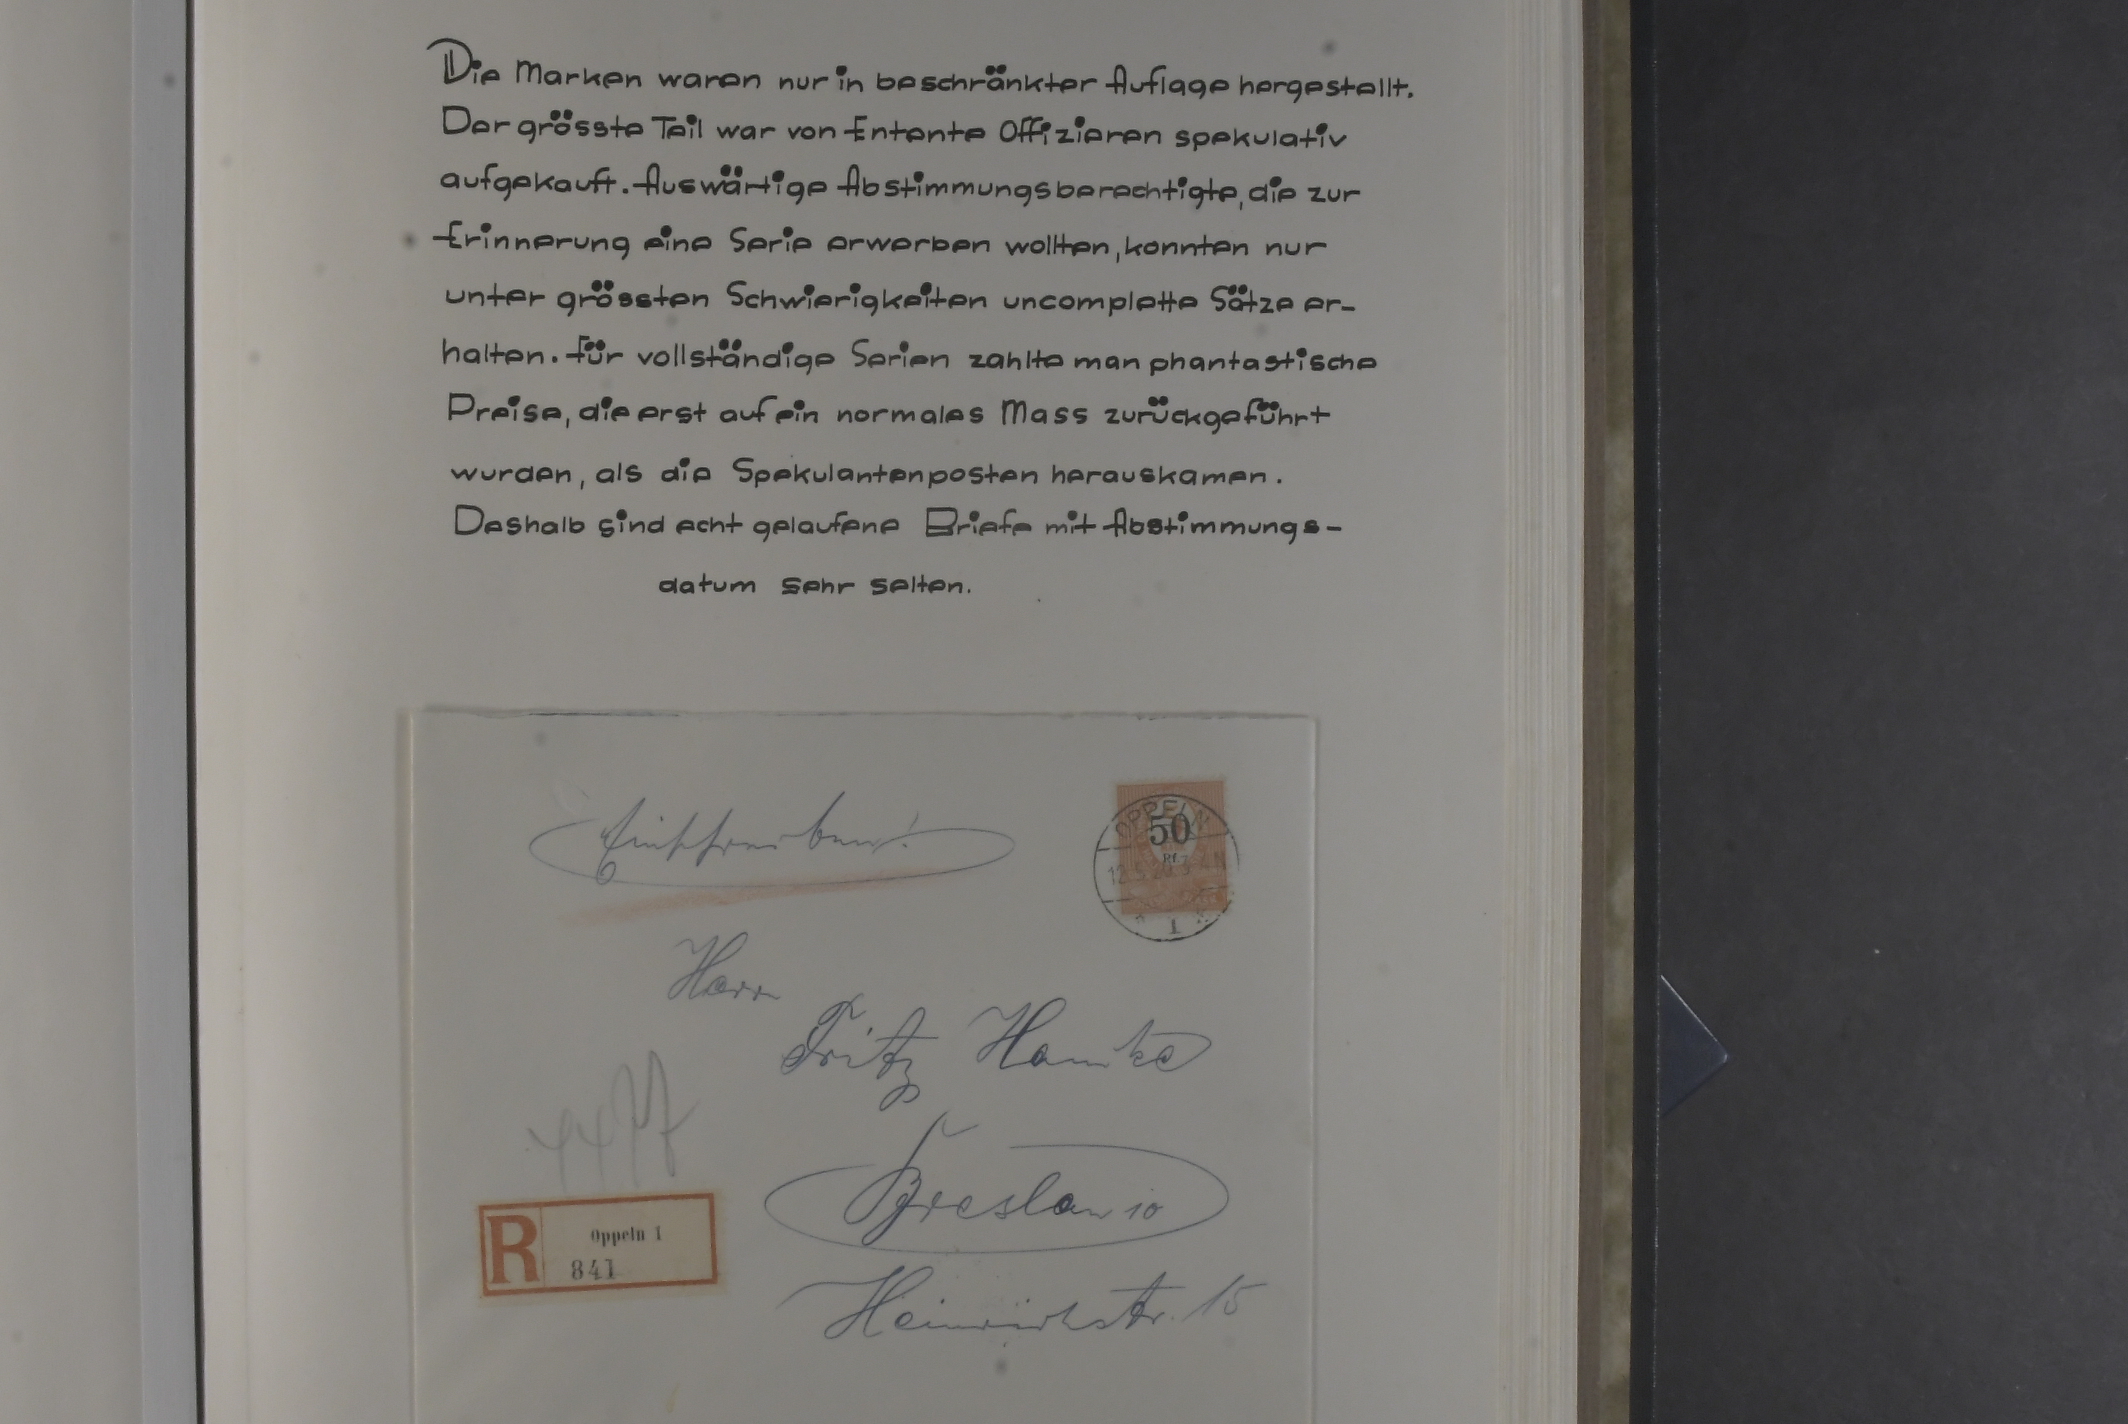 Die Marken waren nur in beschränkter Auflage hergestellt.
Der grösste Teil war von Entente Offizieren spekulativ
aufgekauft. Auswärtige Abstimmungsberechtigte, die zur
Erinnerung eine Serie erwerben wollten, konnten nur
unter grössten Schwierigkeiten uncomplette Sätze er-
halten. Für vollständige Serien zahlte man phantastische
Preise, die erst auf ein normales Mass zurückgeführt
wurden, als die Spekulantenposten herauskamen.
Deshalb sind echt gelaufene Briefe mit Abstimmungs-
datum sehr selten.
Einschreiben!
OPPELN
50
Pf.
1
Herrn
Fritz Hanke
Breslau 10
R
Oppeln 1
841
Heinrichstr. 15